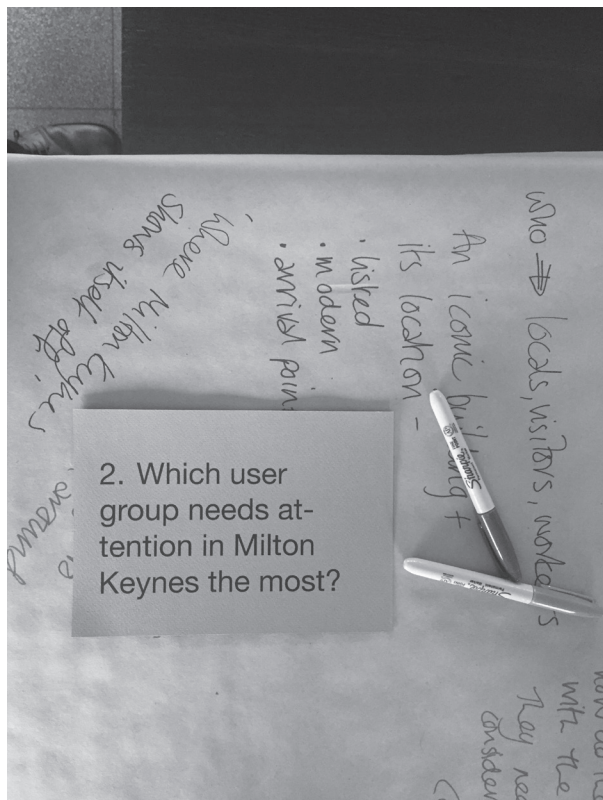 2. Which user
group needs at-
tention in Milton
Keynes the most?
who → locals, visitors, workers
An iconic building +
its location -
• listed
• modern
• arrival poin
'where Milton Keynes
shows itself off'
with the
They nee
consider
Sharpie